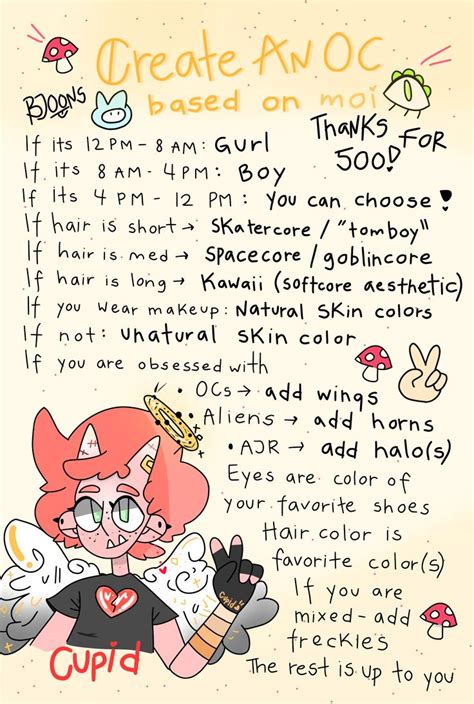 Create An OC
based on moi
BJOONS
THANKS FOR
500!
If its 12 PM - 8 AM: Gurl
If its 8 AM - 4 PM: Boy
If its 4 PM - 12 PM: You can choose!
If hair is short → Skatercore / "tomboy"
If hair is med → Spacecore / goblincore
If hair is long → Kawaii (softcore aesthetic)
If you wear makeup: Natural Skin colors
If not: unatural skin color
If you are obsessed with
• OCs → add wings
• Aliens → add horns
• AJR → add halo(s)
Eyes are color of
your favorite shoes
Hair color is
favorite color(s)
If you are
mixed - add
freckles
The rest is up to you
Cupid
Cupid